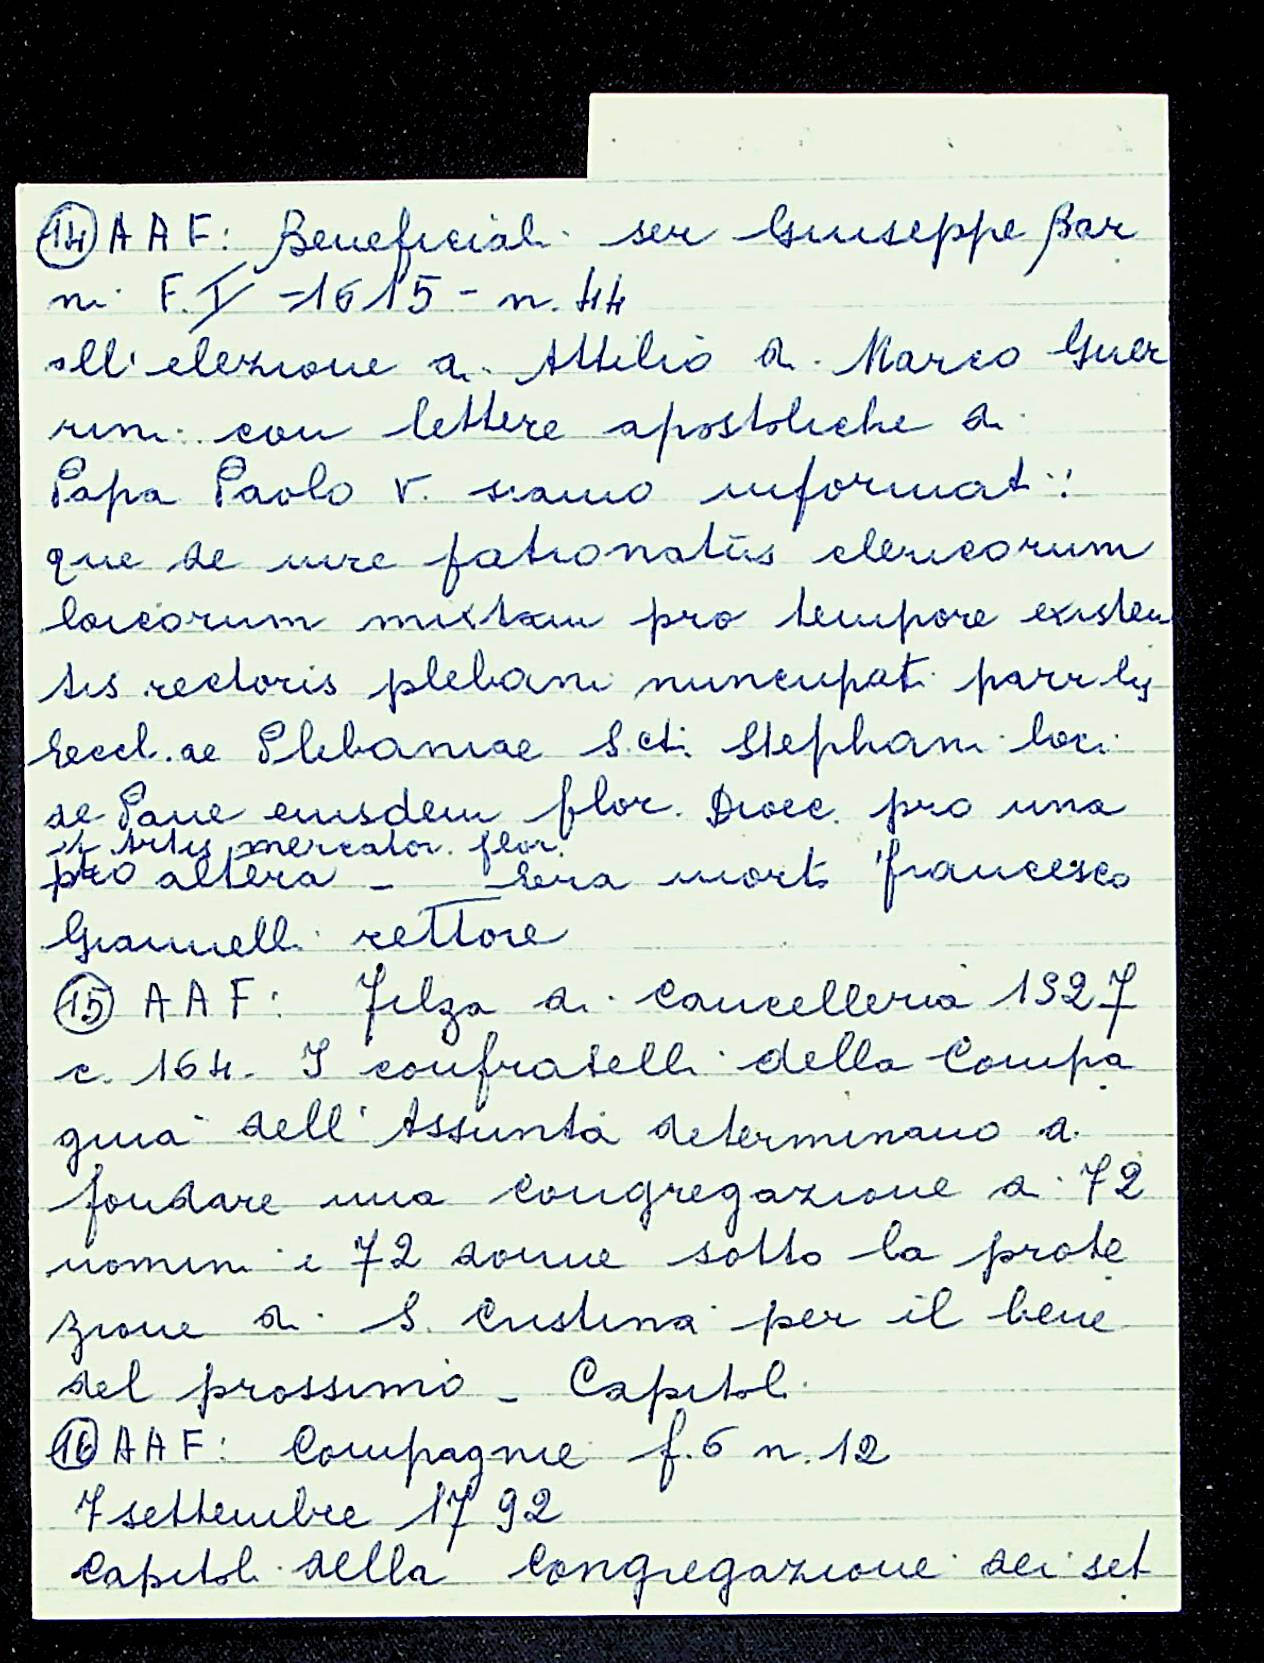 14 AAF: Beneficiali ser Giuseppe Bar
ni F. V - 1615 - n. 44
all'elezione di Attilio di Marco Guer
rini con lettere apostoliche di
Papa Paolo V. siamo informati:
que de iure patronatus clericorum
laicorum mixtam pro tempore existen
tis rectoris plebani nuncupati parr.lis
Eccl.ae Plebaniae S.cti Stephani loci
de Pane eiusdem flor. Dioec. pro una
et Artis mercator. flor.
pro altera - Era morto Francesco
Giannelli rettore
15 AAF: Filza di Cancelleria 1927
c. 164. I confratelli della Compa
gnia dell'Assunta determinano di
fondare una congregazione di 72
uomini e 72 donne sotto la prote
zione di S. Cristina per il bene
del prossimo - Capitoli
16 AAF: Compagnie f. 6 n. 12
7 settembre 1792
Capitoli della Congregazione dei set